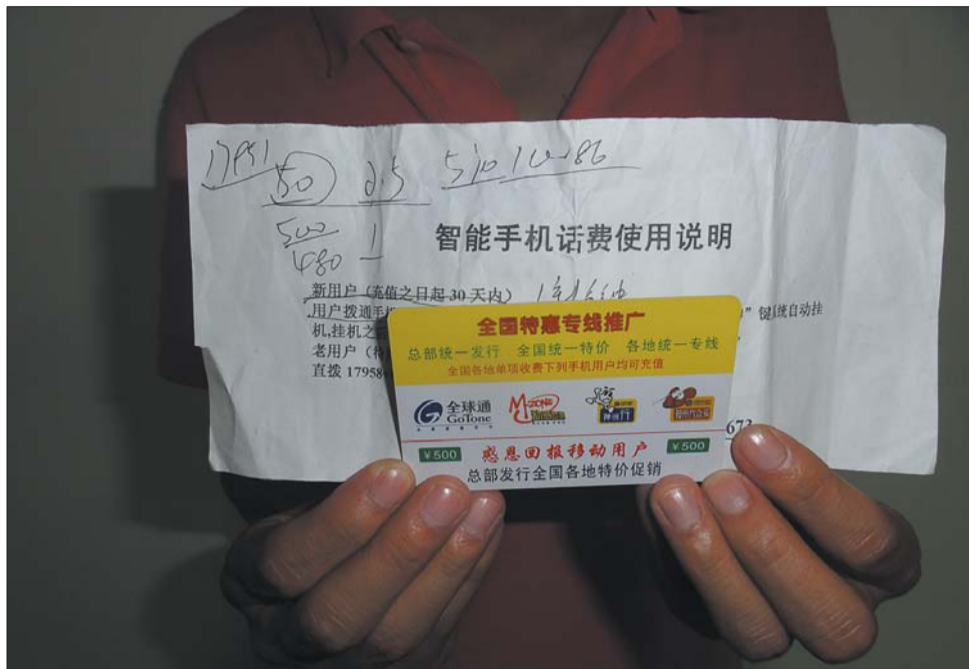 17951
50 0.5 510 10086
500 1
480
智能手机话费使用说明
新用户(充值之日起 30 天内)
用户拨通手
" 键系统自动挂
机,挂机之
老用户(
直拨 17958
673
全国特惠专线推广
总部统一发行 全国统一特价 各地统一专线
全国各地单项收费下列手机用户均可充值
全球通
GoTone
M-ZONE
神州行
¥500 感恩回报移动用户 ¥500
总部发行全国各地特价促销